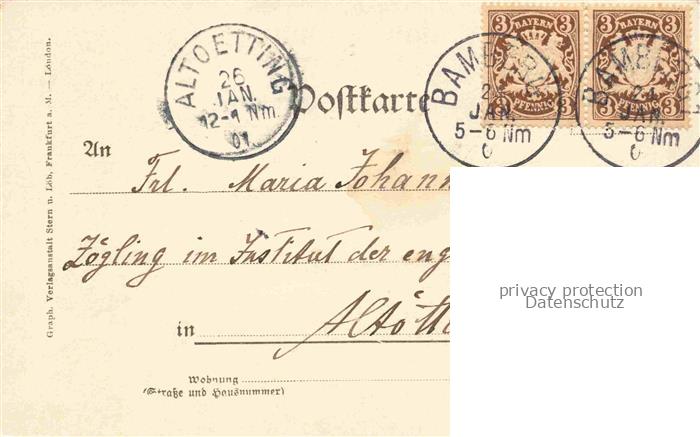 3 BAYERN 3 3 BAYERN 3
3 PFENNIG 3 3 PFENNIG 3
ALTOETTING
26
JAN.
12-1 Nm.
01
BAMBERG
JAN.
5-6 Nm
0
BAMBERG
24
JAN.
5-6 Nm
0
Postkarte
An
Frl. Maria Johann
Zögling im Institut der eng
in Altött
Wohnung
(Straße und Hausnummer)
Graph. Verlagsanstalt Stern u. Löb, Frankfurt a. M. — London.
privacy protection
Datenschutz